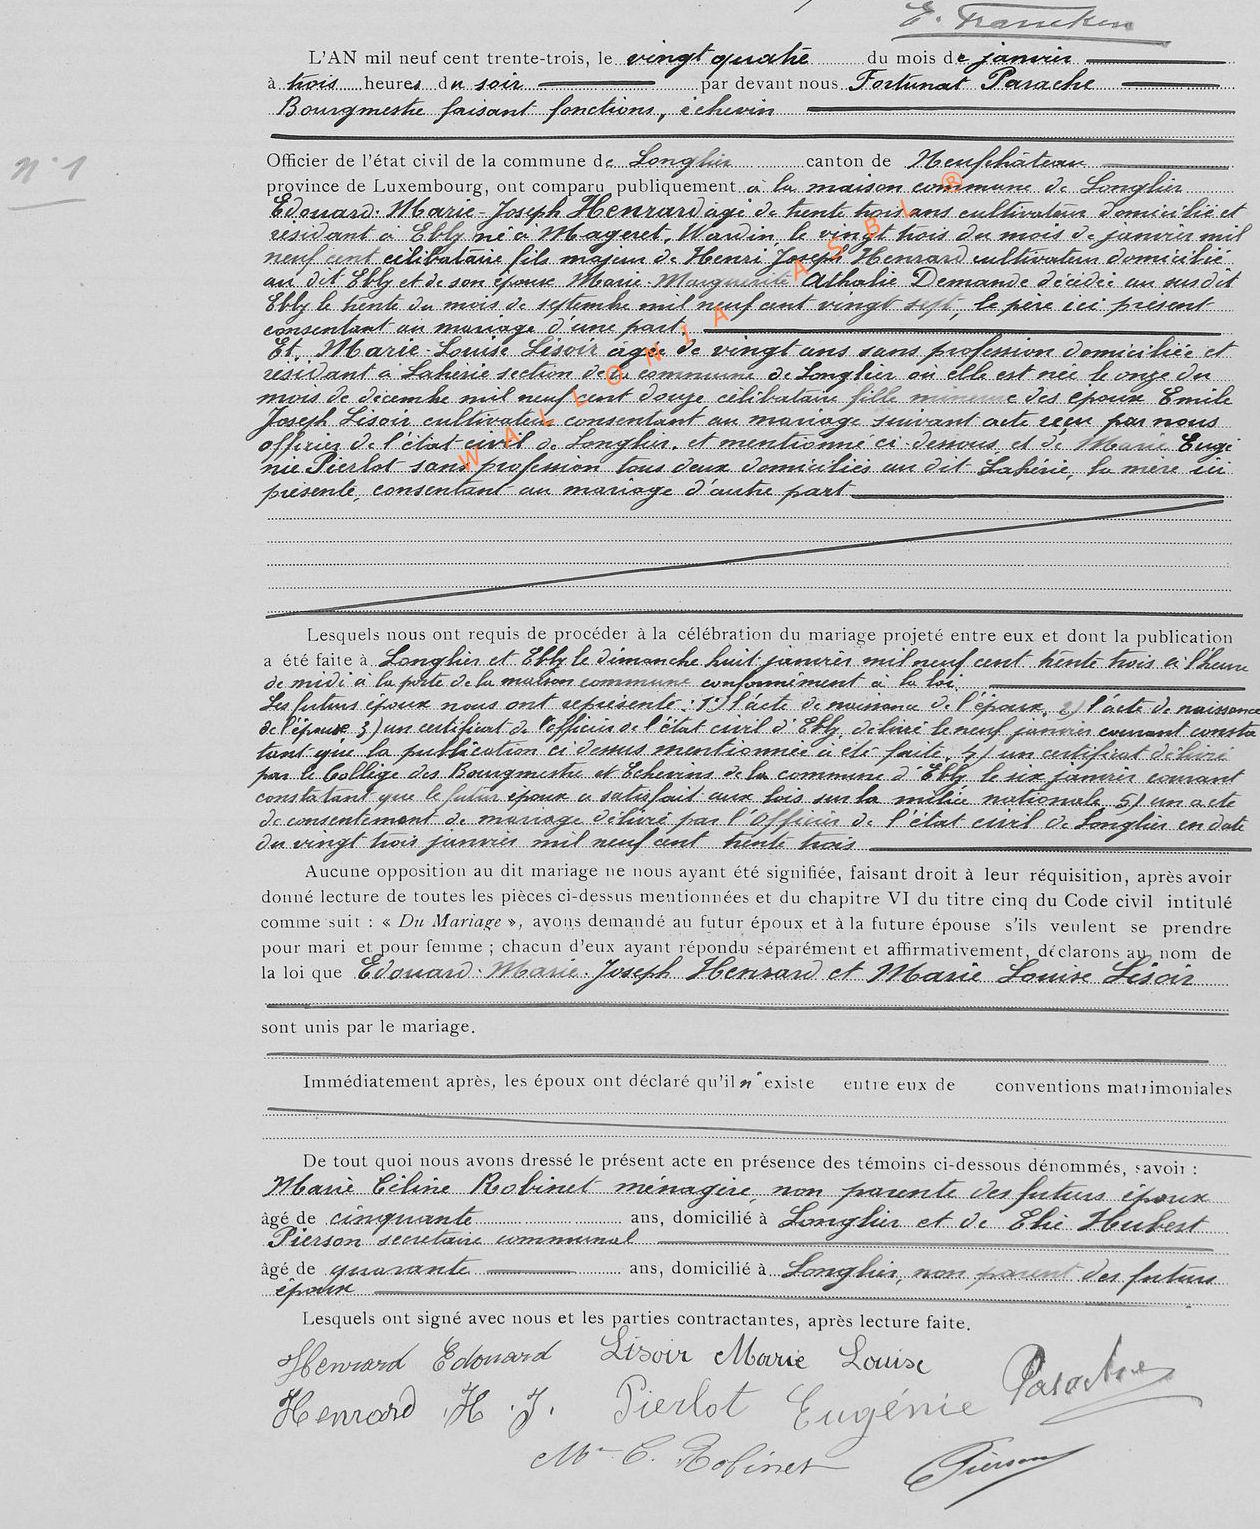 E. Francken
L'AN mil neuf cent trente-trois, le vingt quatre du mois de janvier
à trois heures du soir par devant nous Fortunat Parache
Bourgmestre faisant fonctions, échevin
N° 1
Officier de l'état civil de la commune de Longlier canton de Neufchâteau
province de Luxembourg, ont comparu publiquement à la maison commune de Longlier
Edouard-Marie-Joseph Henrard âgé de trente trois ans cultivateur domicilié et
résidant à Ebly né à Mageret, Wardin, le vingt trois du mois de janvier mil
neuf cent célibataire fils majeur de Henri Joseph Henrard cultivateur domicilié
au dit Ebly et de son épouse Marie-Marguerite Athalie Demande décédée au susdit
Ebly le trente du mois de septembre mil neuf cent vingt sept, le père ici présent
consentant au mariage d'une part.
Et, Marie-Louise Lisoir âgée de vingt ans sans profession domiciliée et
résidant à Lahérie section de la commune de Longlier où elle est née le onze du
mois de décembre mil neuf cent douze célibataire fille mineure des époux Emile
Joseph Lisoir cultivateur consentant au mariage suivant acte reçu par nous
officier de l'état civil de Longlier, et mentionné ci-dessous et de Marie Eugé
nie Pierlot sans profession tous deux domiciliés au dit Lahérie, la mère ici
présente, consentant au mariage d'autre part
WALLONIA ASBL ®
Lesquels nous ont requis de procéder à la célébration du mariage projeté entre eux et dont la publication
a été faite à Longlier et Ebly le dimanche huit janvier mil neuf cent trente trois à l'heure
de midi à la porte de la maison commune conformément à la loi.
Les futurs époux nous ont représenté : 1°) l'acte de naissance de l'époux, 2) l'acte de naissance
de l'épouse 3) un certificat de l'officier de l'état civil d'Ebly, délivré le neuf janvier courant consta
tant que la publication ci dessus mentionnée a été faite, 4) un certificat délivré
par le Collège des Bourgmestre et Echevins de la commune d'Ebly le six janvier courant
constatant que le futur époux a satisfait aux lois sur la milice nationale 5) un acte
de consentement de mariage délivré par l'Officier de l'état civil de Longlier en date
du vingt trois janvier mil neuf cent trente trois
Aucune opposition au dit mariage ne nous ayant été signifiée, faisant droit à leur réquisition, après avoir
donné lecture de toutes les pièces ci-dessus mentionnées et du chapitre VI du titre cinq du Code civil intitulé
comme suit : « Du Mariage », avons demandé au futur époux et à la future épouse s'ils veulent se prendre
pour mari et pour femme ; chacun d'eux ayant répondu séparément et affirmativement, déclarons au nom de
la loi que Edouard-Marie-Joseph Henrard et Marie Louise Lisoir
sont unis par le mariage.
Immédiatement après, les époux ont déclaré qu'il n'existe entre eux de conventions matrimoniales
De tout quoi nous avons dressé le présent acte en présence des témoins ci-dessous dénommés, savoir :
Marie Céline Robinet ménagère, non parente des futurs époux
âgé de cinquante ans, domicilié à Longlier et de Elie Hubert
Pierson secrétaire communal
âgé de quarante ans, domicilié à Longlier, non parent des futurs
époux
Lesquels ont signé avec nous et les parties contractantes, après lecture faite.
Henrard Edouard Lisoir Marie Louise
Parache
Henrard H. J. Pierlot Eugénie
M. C. Robinet Pierson